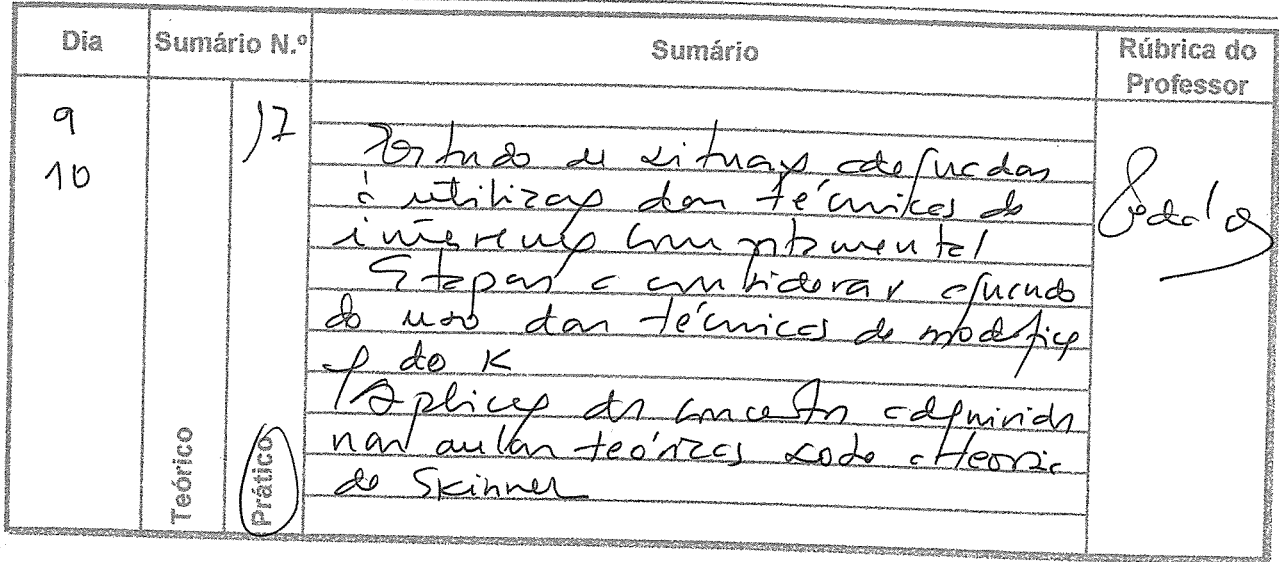 Dia Sumário N.º Sumário Rúbrica do Professor
9
10
17
Estudo de situaçs adequadas
à utilizaç das técnicas de
intervenç comportamental
Etapas a considerar aquando
do uso das técnicas de modific
ç do K
Aplicaç dos conceitos adquiridos
nas aulas teóricas sobre a teoria
de Skinner
Teórico
Prático